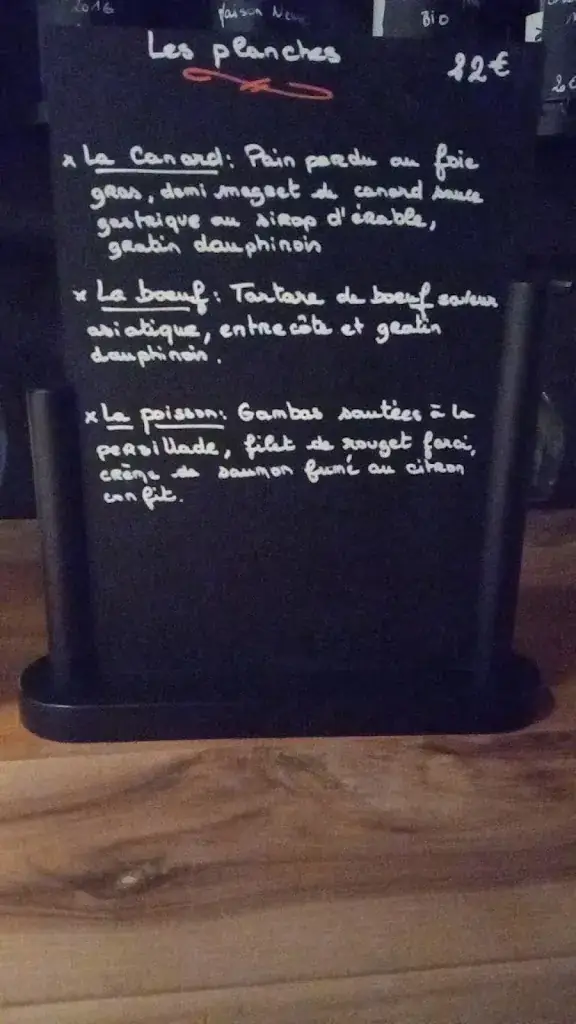 2016
Maison New
Bio
Les planches
22€
x La Canard: Pain perdu au foie
gras, demi magret de canard sauce
gastrique au sirop d'érable,
gratin dauphinois
x La boeuf: Tartare de boeuf saveur
asiatique, entrecôte et gratin
dauphinois.
x La poisson: Gambas sautées à la
persillade, filet de rouget farci,
crème de saumon fumé au citron
confit.